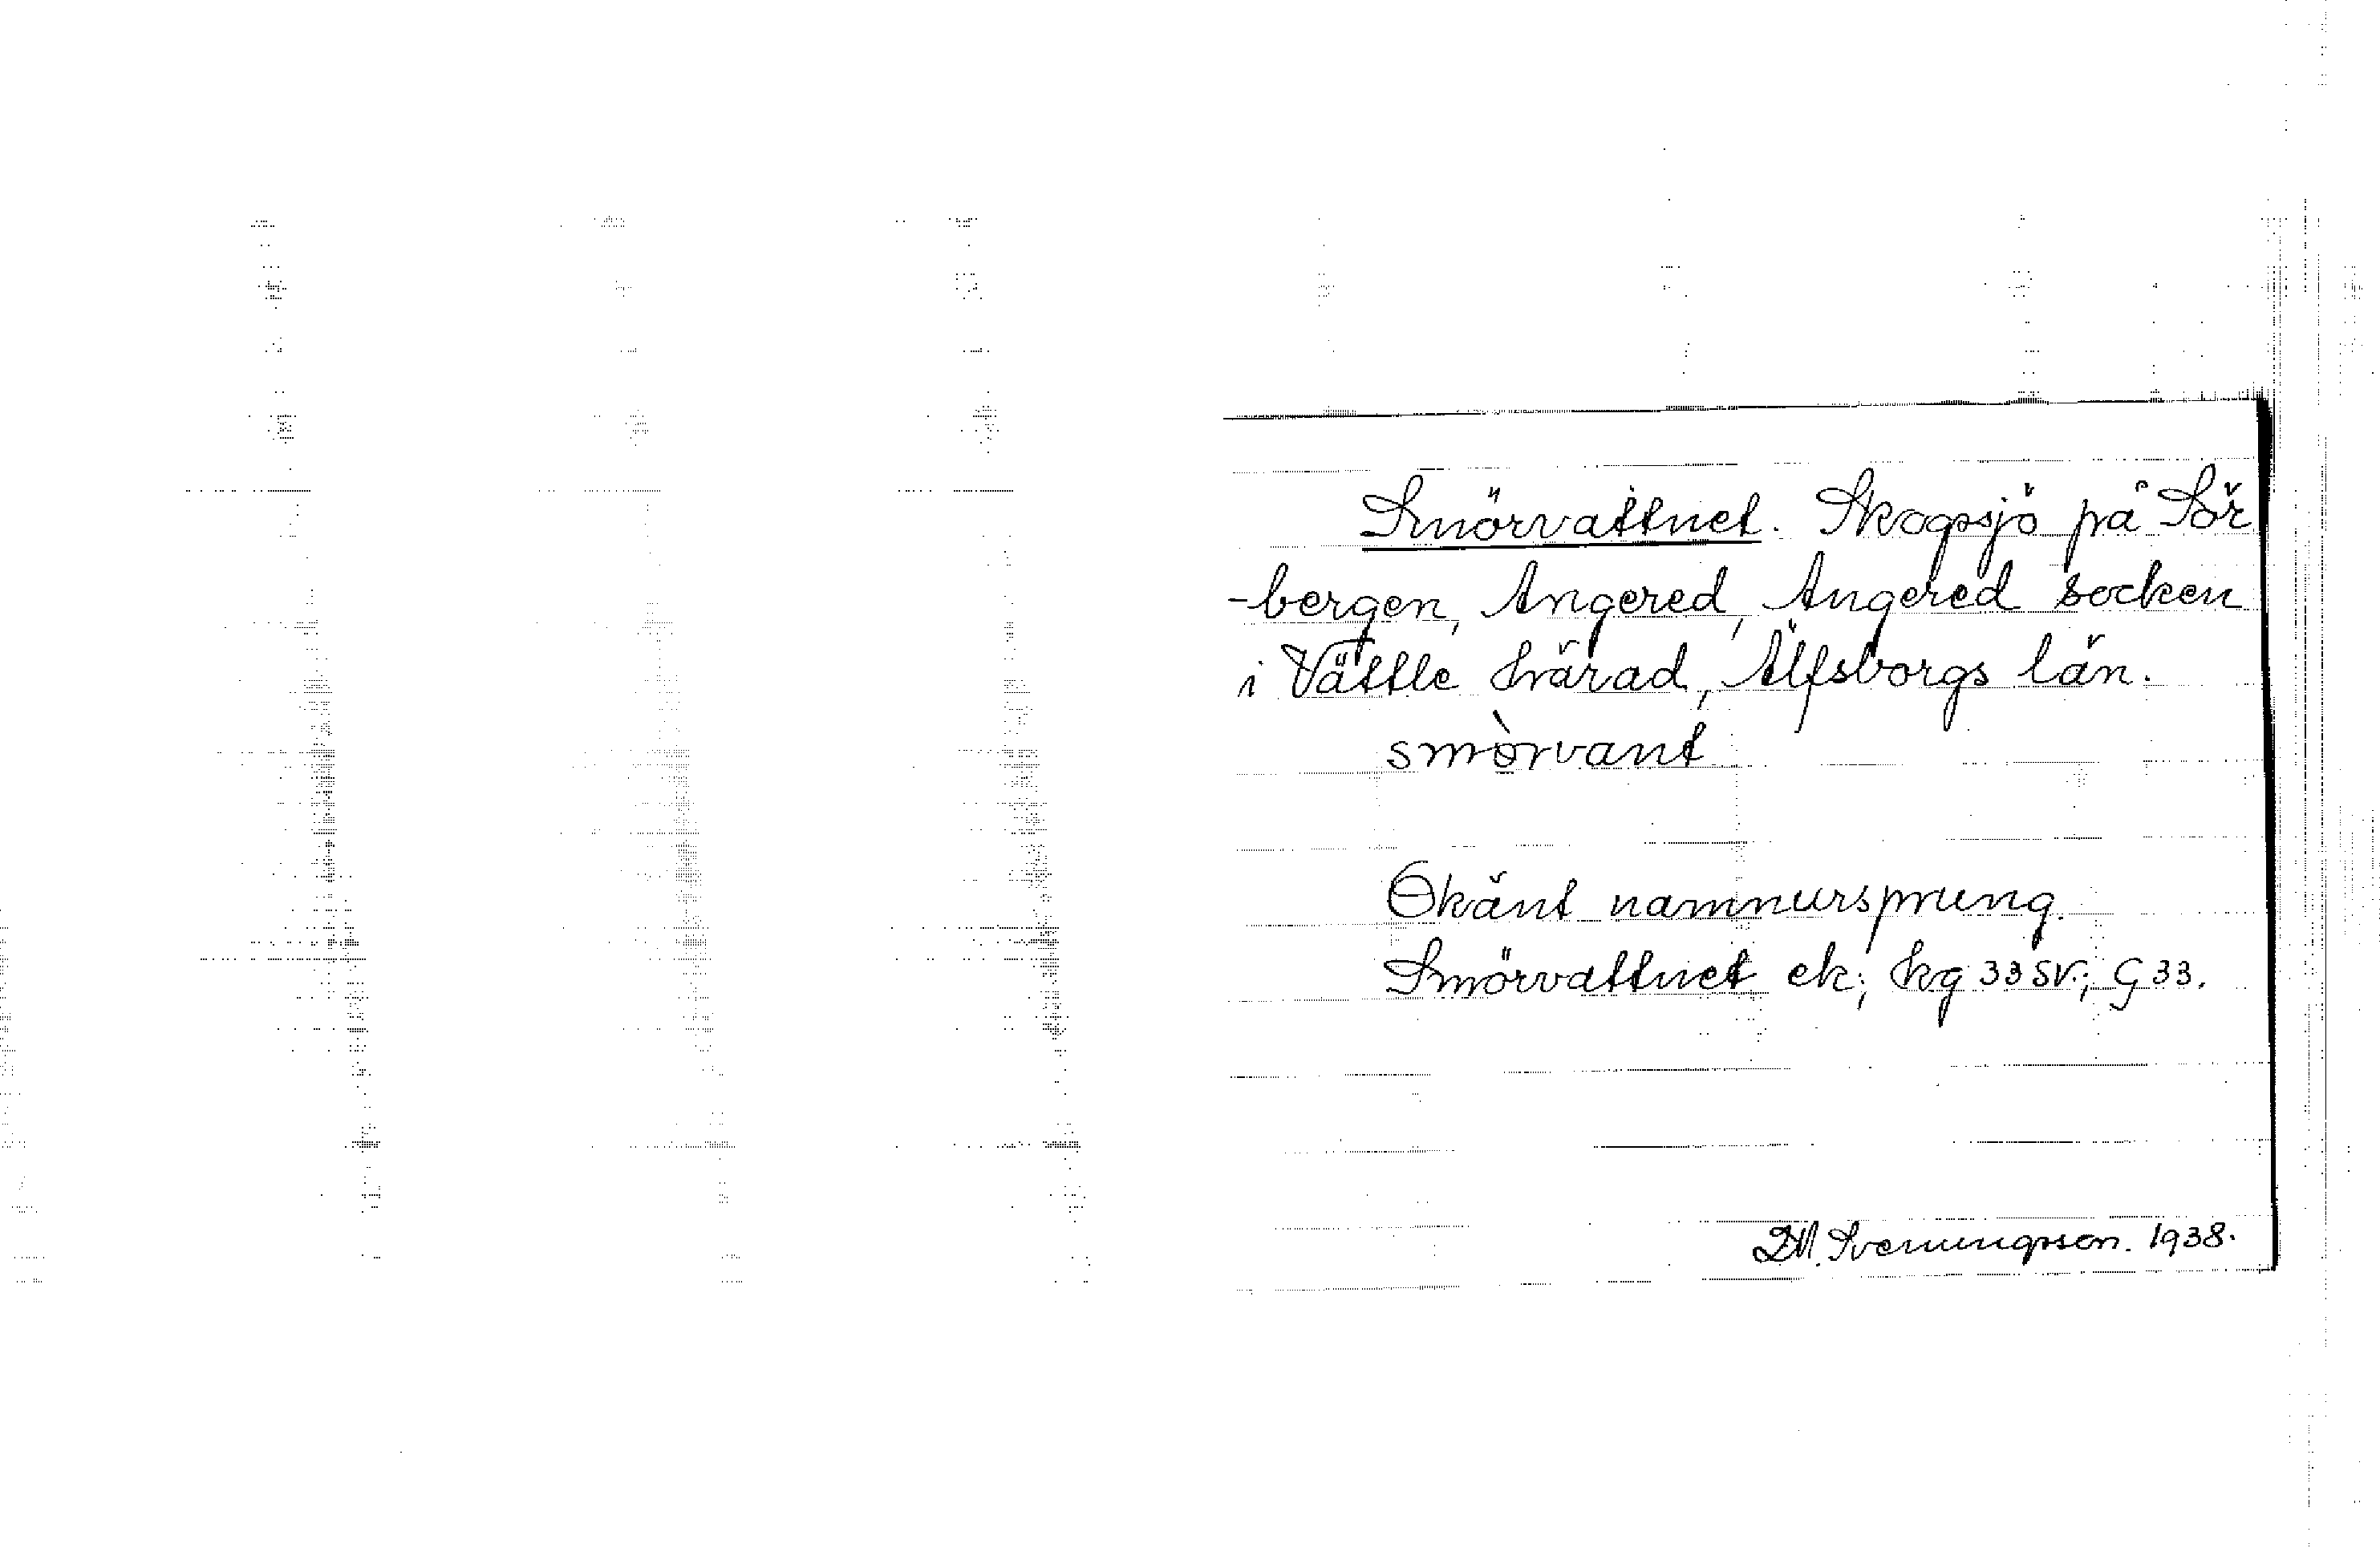 Smörvattnet. Skogssjö på Sör
-bergen, Angered, Angered socken
i Vättle härad, Älfsborgs län.
smòrvant
Okänt namnursprung.
Smörvattnet ek; kg 33 SV.; G 33.
D.M. Svenungsson. 1938.